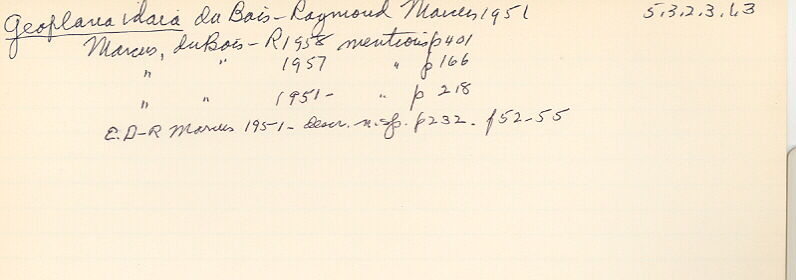 Geoplana idaia du Bois-Raymond Marcus 1951 5.3.2.3.43
Marcus, duBois-R 1958 mentions p401
" " 1957 " p 166
" " 1951- " p 218
E.D-R Marcus 1951- descr. n.sp. p232. f52-55